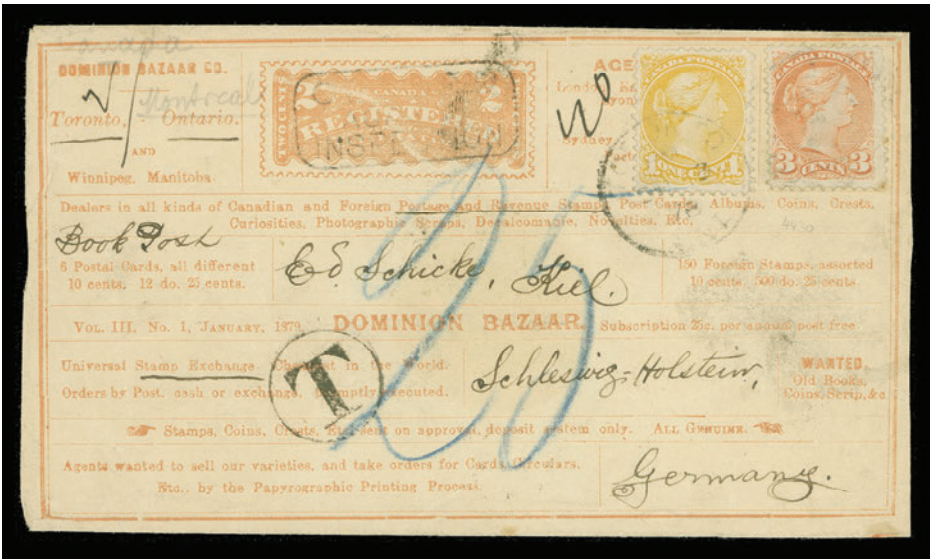 Canada
DOMINION BAZAAR CO.
Montreal
Toronto, Ontario.
AND
Winnipeg, Manitoba.
2 CANADA 2
TWO CENTS
REGISTERED
INSPECTION
No
AGE
London, En
Lyon
Sydney,
CANADA POSTAGE
1 ONE CENT 1
CANADA POSTAGE
3 CENTS 3
Dealers in all kinds of Canadian and Foreign Postage and Revenue Stamps, Post Cards, Albums, Coins, Crests,
Curiosities, Photographic Scraps, Decalcomanie, Novelties, Etc.
4430
Book Post
6 Postal Cards, all different
10 cents. 12 do. 25 cents.
Ed Schicke, Kiel.
150 Foreign Stamps, assorted
10 cents, 500 do. 25 cents.
25
VOL. III, No. 1, JANUARY, 1879. DOMINION BAZAAR. Subscription 25c. per annum post free
Universal Stamp Exchange. Cheapest in the World.
Orders by Post, cash or exchange, promptly executed.
T
Schleswig-Holstein,
WANTED,
Old Books,
Coins, Scrip, &c
Stamps, Coins, Crests, Etc., sent on approval, deposit system only. ALL GENUINE.
Agents wanted to sell our varieties, and take orders for Cards, Circulars.
Etc., by the Papyrographic Printing Process.
Germany.